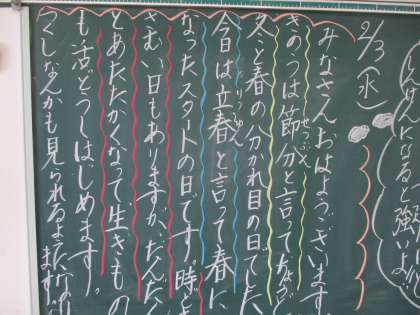 なると強いよ!!
2/3(水)
みなさんおはようございます
きのうは節分と言ってちょうど
せつぶん
冬と春の分かれ目の日でした
今日は立春と言って春に
りっしゅん
なったスタートの日です。時
さむい日もありますが、だんだん
とあたたかくなって生きもの
も活どうしはじめます。
つくしなんかも見られるようになり
ます